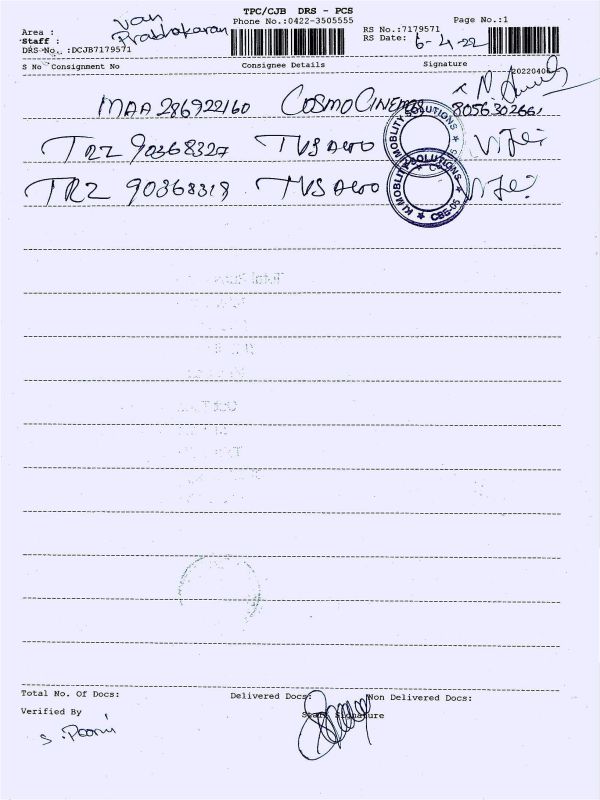 TPC/CJB DRS - PCS
Area : Van
Phone No.:0422-3505555
Page No.:1
Staff : Prabhakaran
RS No.:7179571
DRS No. :DCJB7179571
RS Date: 6-4-22
S No Consignment No Consignee Details Signature
20220406
MAA 286922160 COSMO CINEMAS 8056302661
TRZ 90368327 TVS Auto
TRZ 90368319 TVS Auto
KJ MOBLITY SOLUTIONS CBE-05
KJ MOBLITY SOLUTIONS CBE-05
Total No. Of Docs: Delivered Docs: Non Delivered Docs:
Verified By Staff Signature